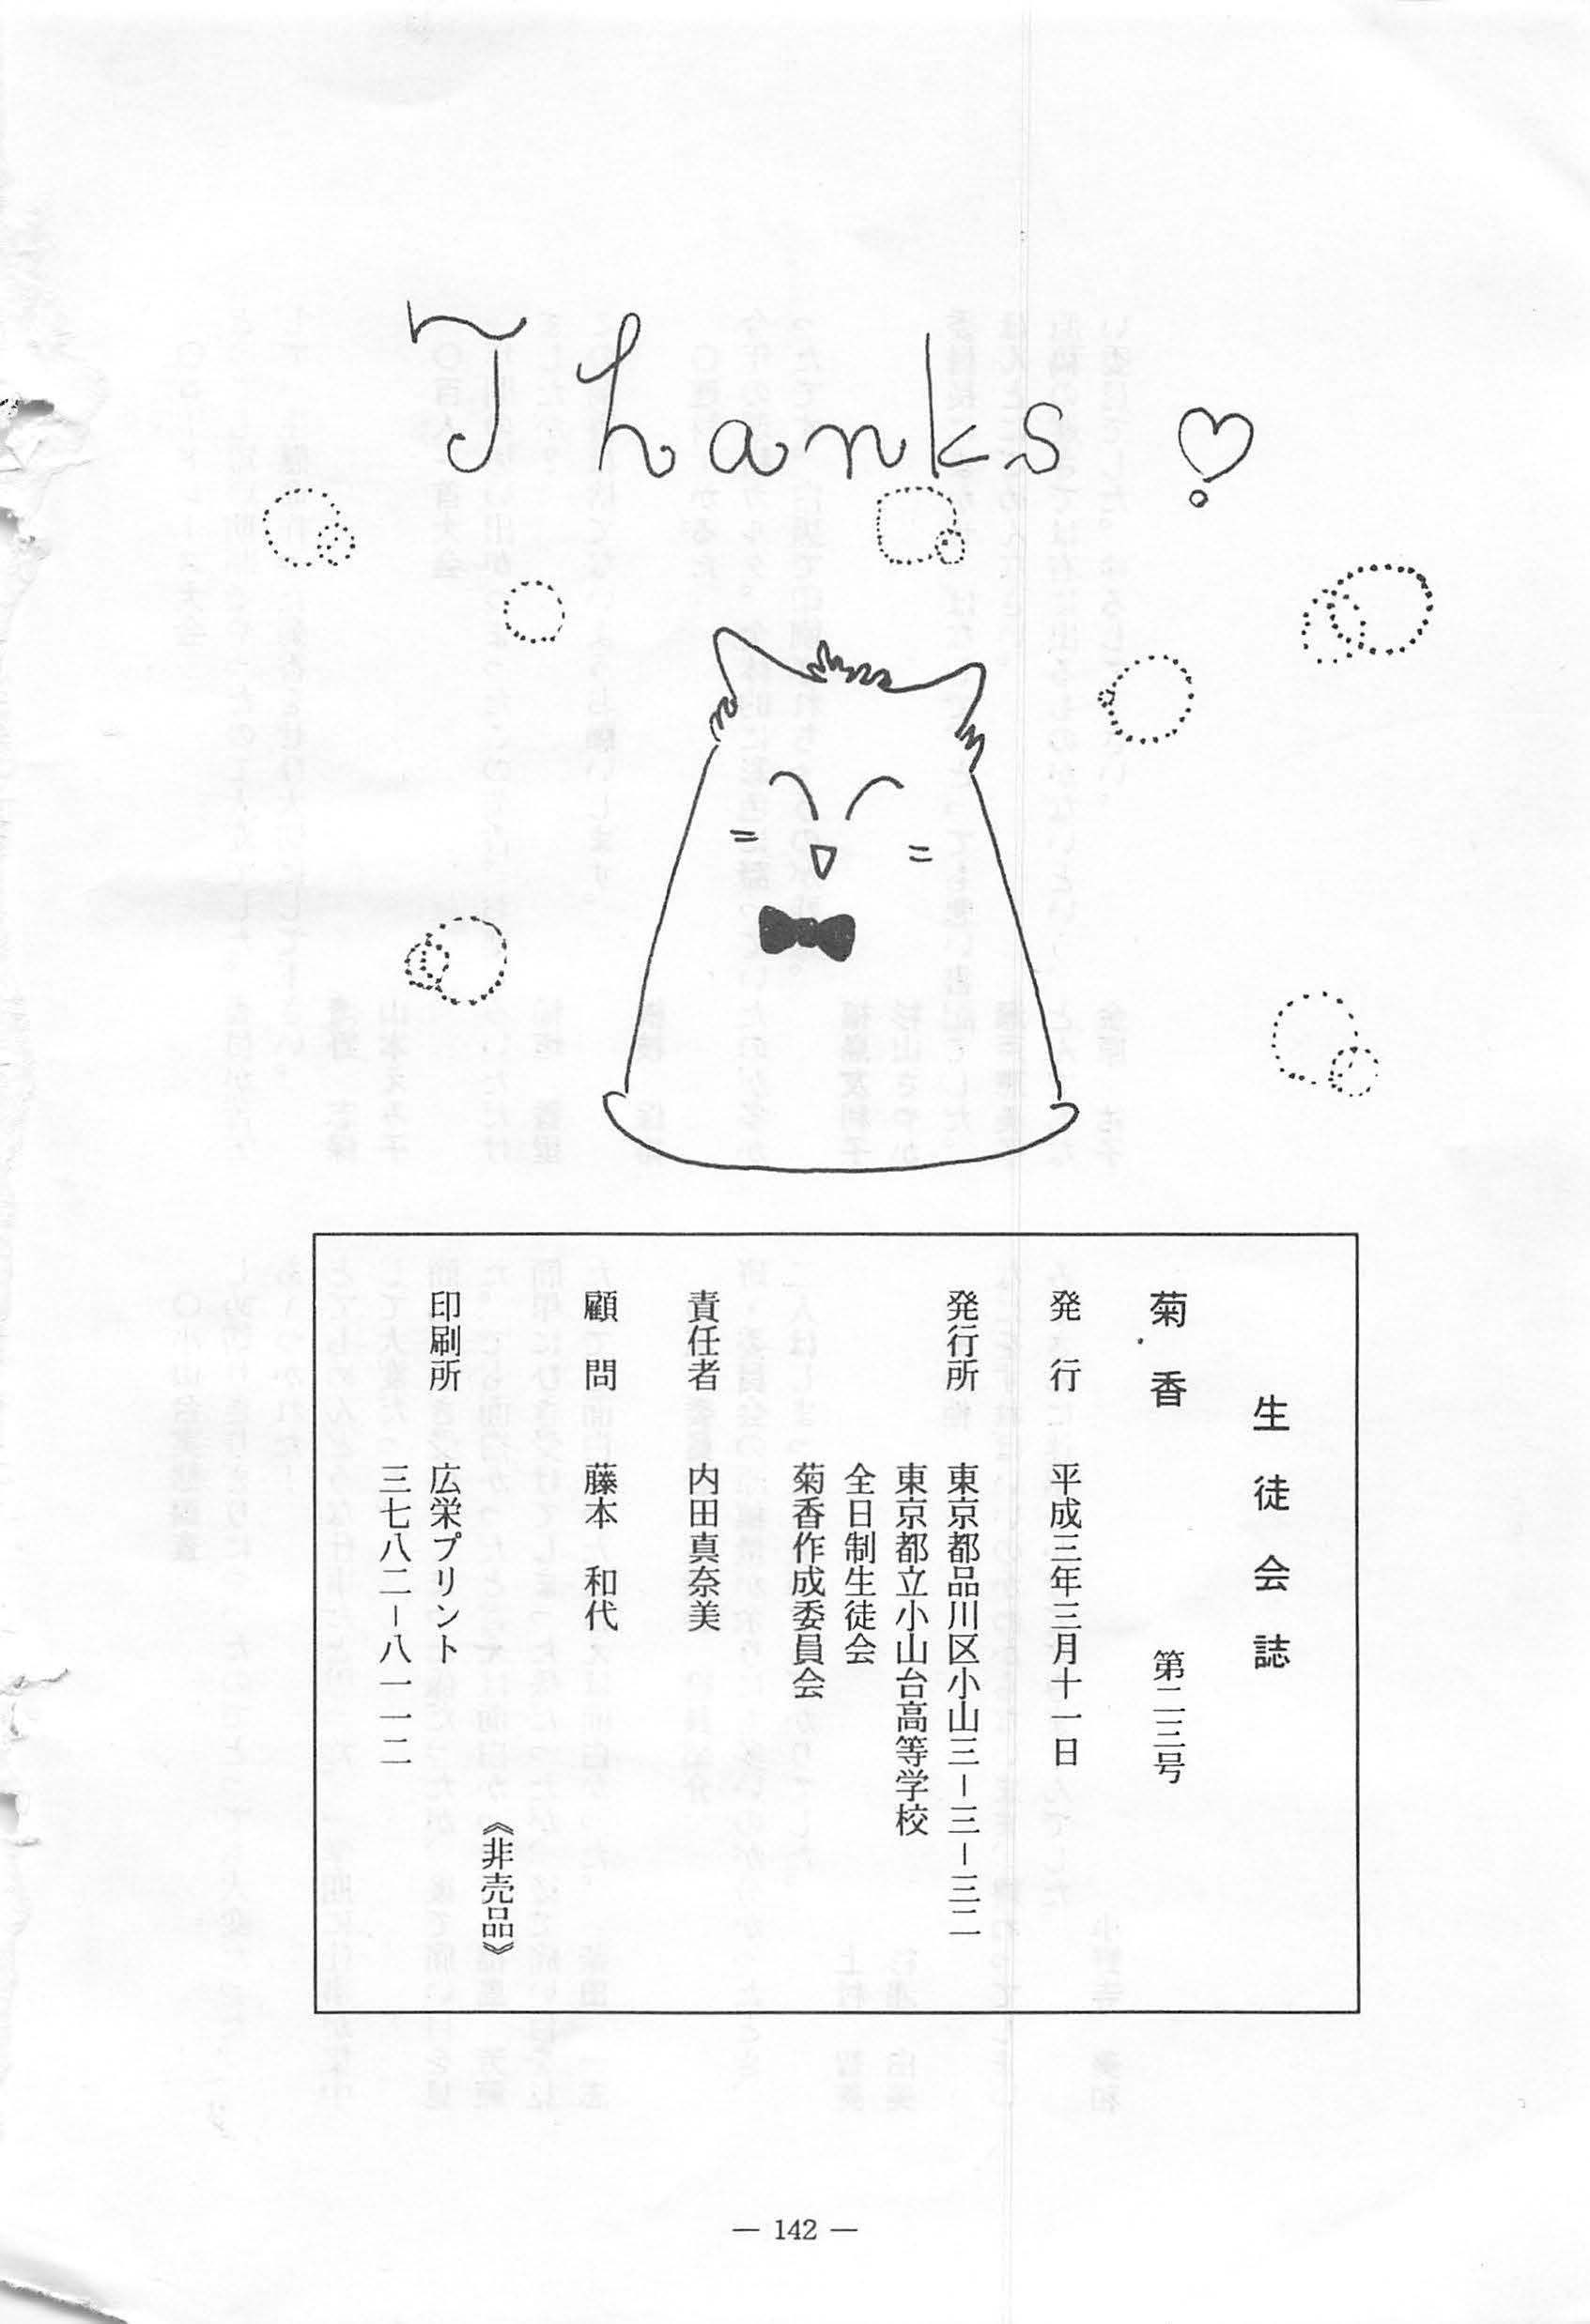 Thanks♡
生徒会誌
菊香 第二三号
発行 平成三年三月十一日
発行所 東京都品川区小山三－三－三二
東京都立小山台高等学校
全日制生徒会
菊香作成委員会
責任者 内田真奈美
顧問 藤本 和代
《非売品》
印刷所 広栄プリント
三七八二－八一一二
— 142 —